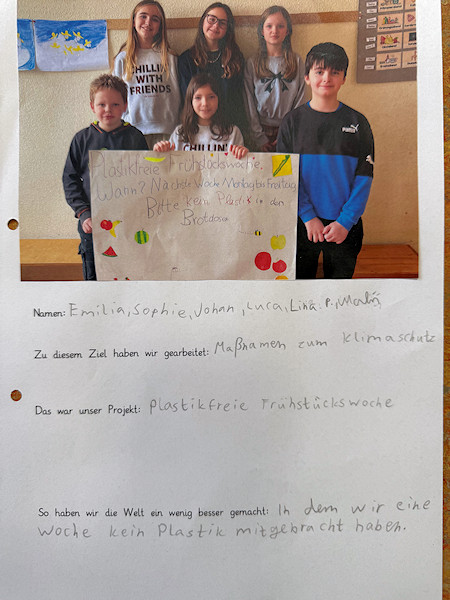 CHILLIN'
WITH
FRIENDS
PUMA
CHILLIN'
Plastikfreie Frühstückswoche.
Wann? Nächste Woche Montag bis Freitag
Bitte kein Plastik in den
Brotdosen
Namen: Emilia, Sophie, Johan, Luca, Lina P.,
Zu diesem Ziel haben wir gearbeitet: Maßnamen zum Klimaschutz
Das war unser Projekt: Plastikfreie Frühstückswoche
So haben wir die Welt ein wenig besser gemacht: In dem wir eine
woche kein Plastik mitgebracht haben.